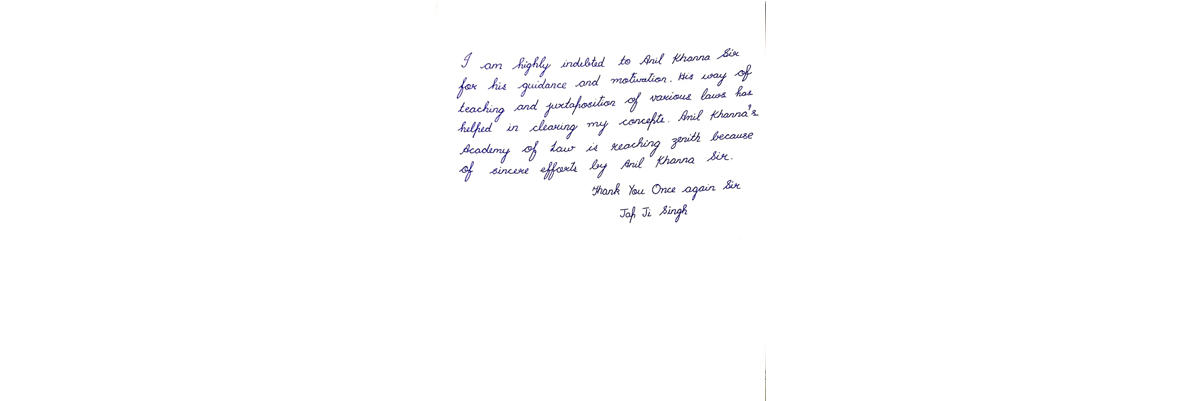 I am highly indebted to Anil Khanna Sir
for his guidance and motivation. His way of
teaching and juxtaposition of various laws has
helped in clearing my concepts. Anil Khanna's
Academy of Law is reaching zenith because
of sincere efforts by Anil Khanna Sir.
Thank You Once again Sir
Jap Ji Singh